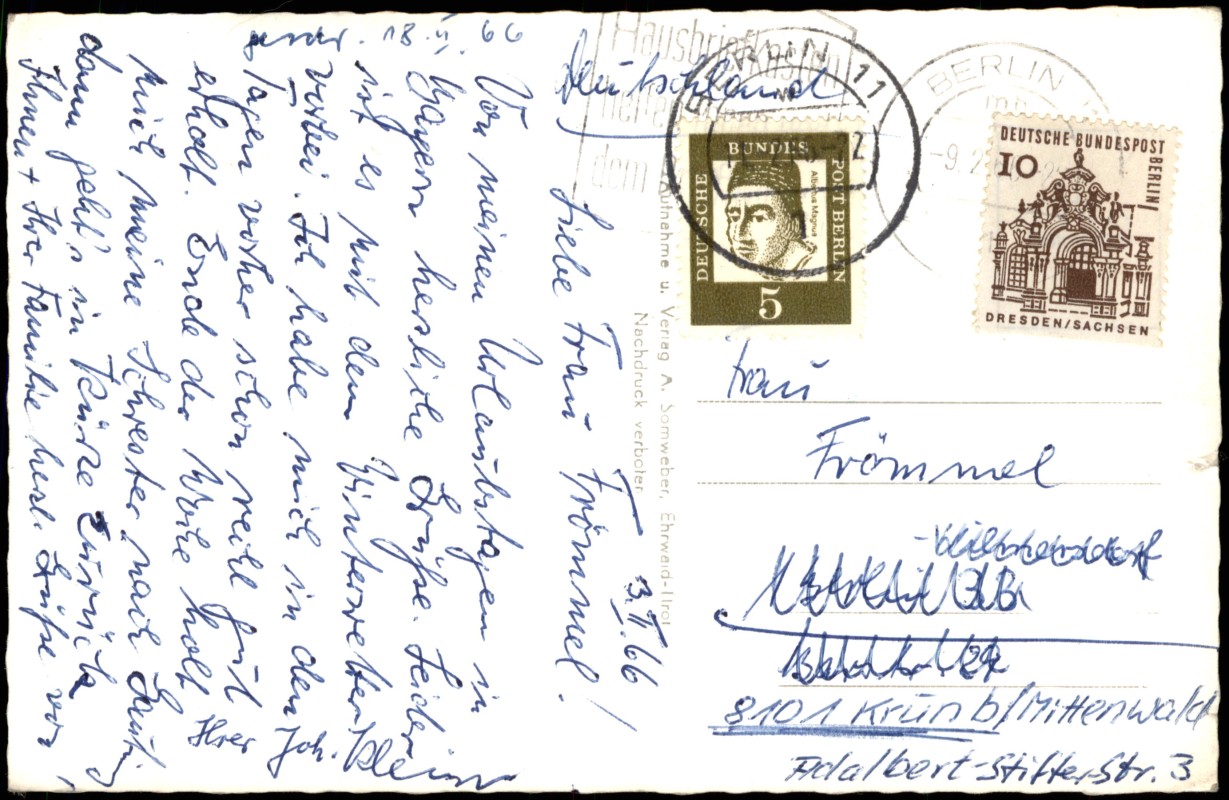 Deutschland
3.II.66
Liebe Frau Frömmel!
Von meinen Urlaubstagen in
herzliche Grüße. Leider
ist es mit dem Winterwetter
vorbei. Ich habe mich in den
Tagen vorher schon recht gut
erholt. Ende der Woche holt
mich meine Schwester nach
dann geht's in Kürze zurück.
Ihnen + Ihrer Familie herzl. Grüße von
Ihrer Joh. Klein
18.5. 66
Aufnahme u. Verlag A. Somweber, Ehrwald-Tirol
Nachdruck verboten
Hausbriefkasten
dem
BERLIN 11
BERLIN
-9.2
DEUTSCHE
BUNDES
POST BERLIN
Albertus Magnus
5
DEUTSCHE BUNDESPOST
BERLIN
10
DRESDEN/SACHSEN
Frau
Frömmel
-Wilmersdorf
8101 Krün b/Mittenwald
Adalbert-Stifter-Str. 3